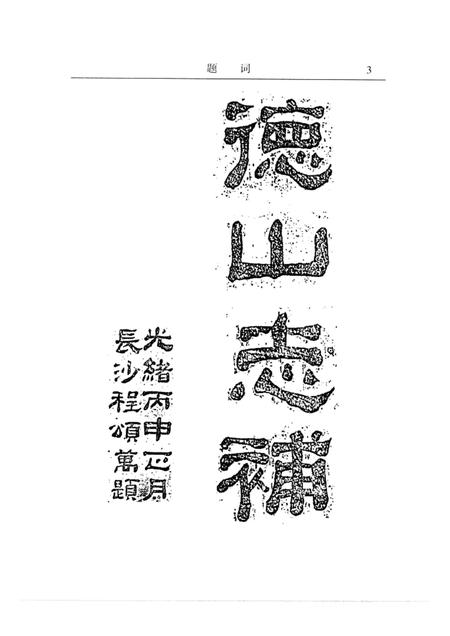 题 词 3
德山志補
光緒丙申正月
長沙程頌萬題